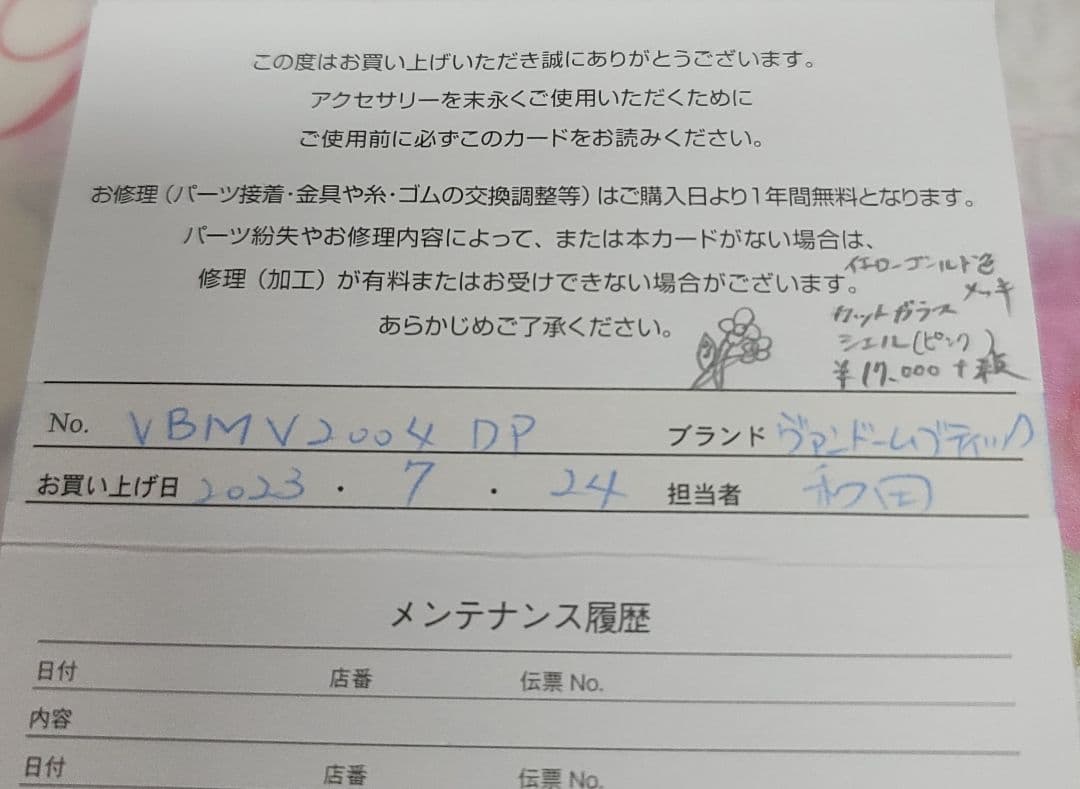 この度はお買い上げいただき誠にありがとうございます。
アクセサリーを末永くご使用いただくために
ご使用前に必ずこのカードをお読みください。
お修理（パーツ接着・金具や糸・ゴムの交換調整等）はご購入日より1年間無料となります。
パーツ紛失やお修理内容によって、または本カードがない場合は、
修理（加工）が有料またはお受けできない場合がございます。
あらかじめご了承ください。
イエローゴールド色
メッキ
カットガラス
シェル(ピンク)
¥17.000+税
No. VBMV2004 DP ブランド ヴァンドームブティック
お買い上げ日 2023・7・24 担当者 和田
メンテナンス履歴
日付 店番 伝票 No.
内容
日付 店番 伝票 No.